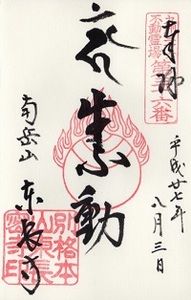 奉拝
不動霊場
第三十六番
動
平成廿七年
八月三日
南岳山 東長寺
別格本
山東長
密寺印